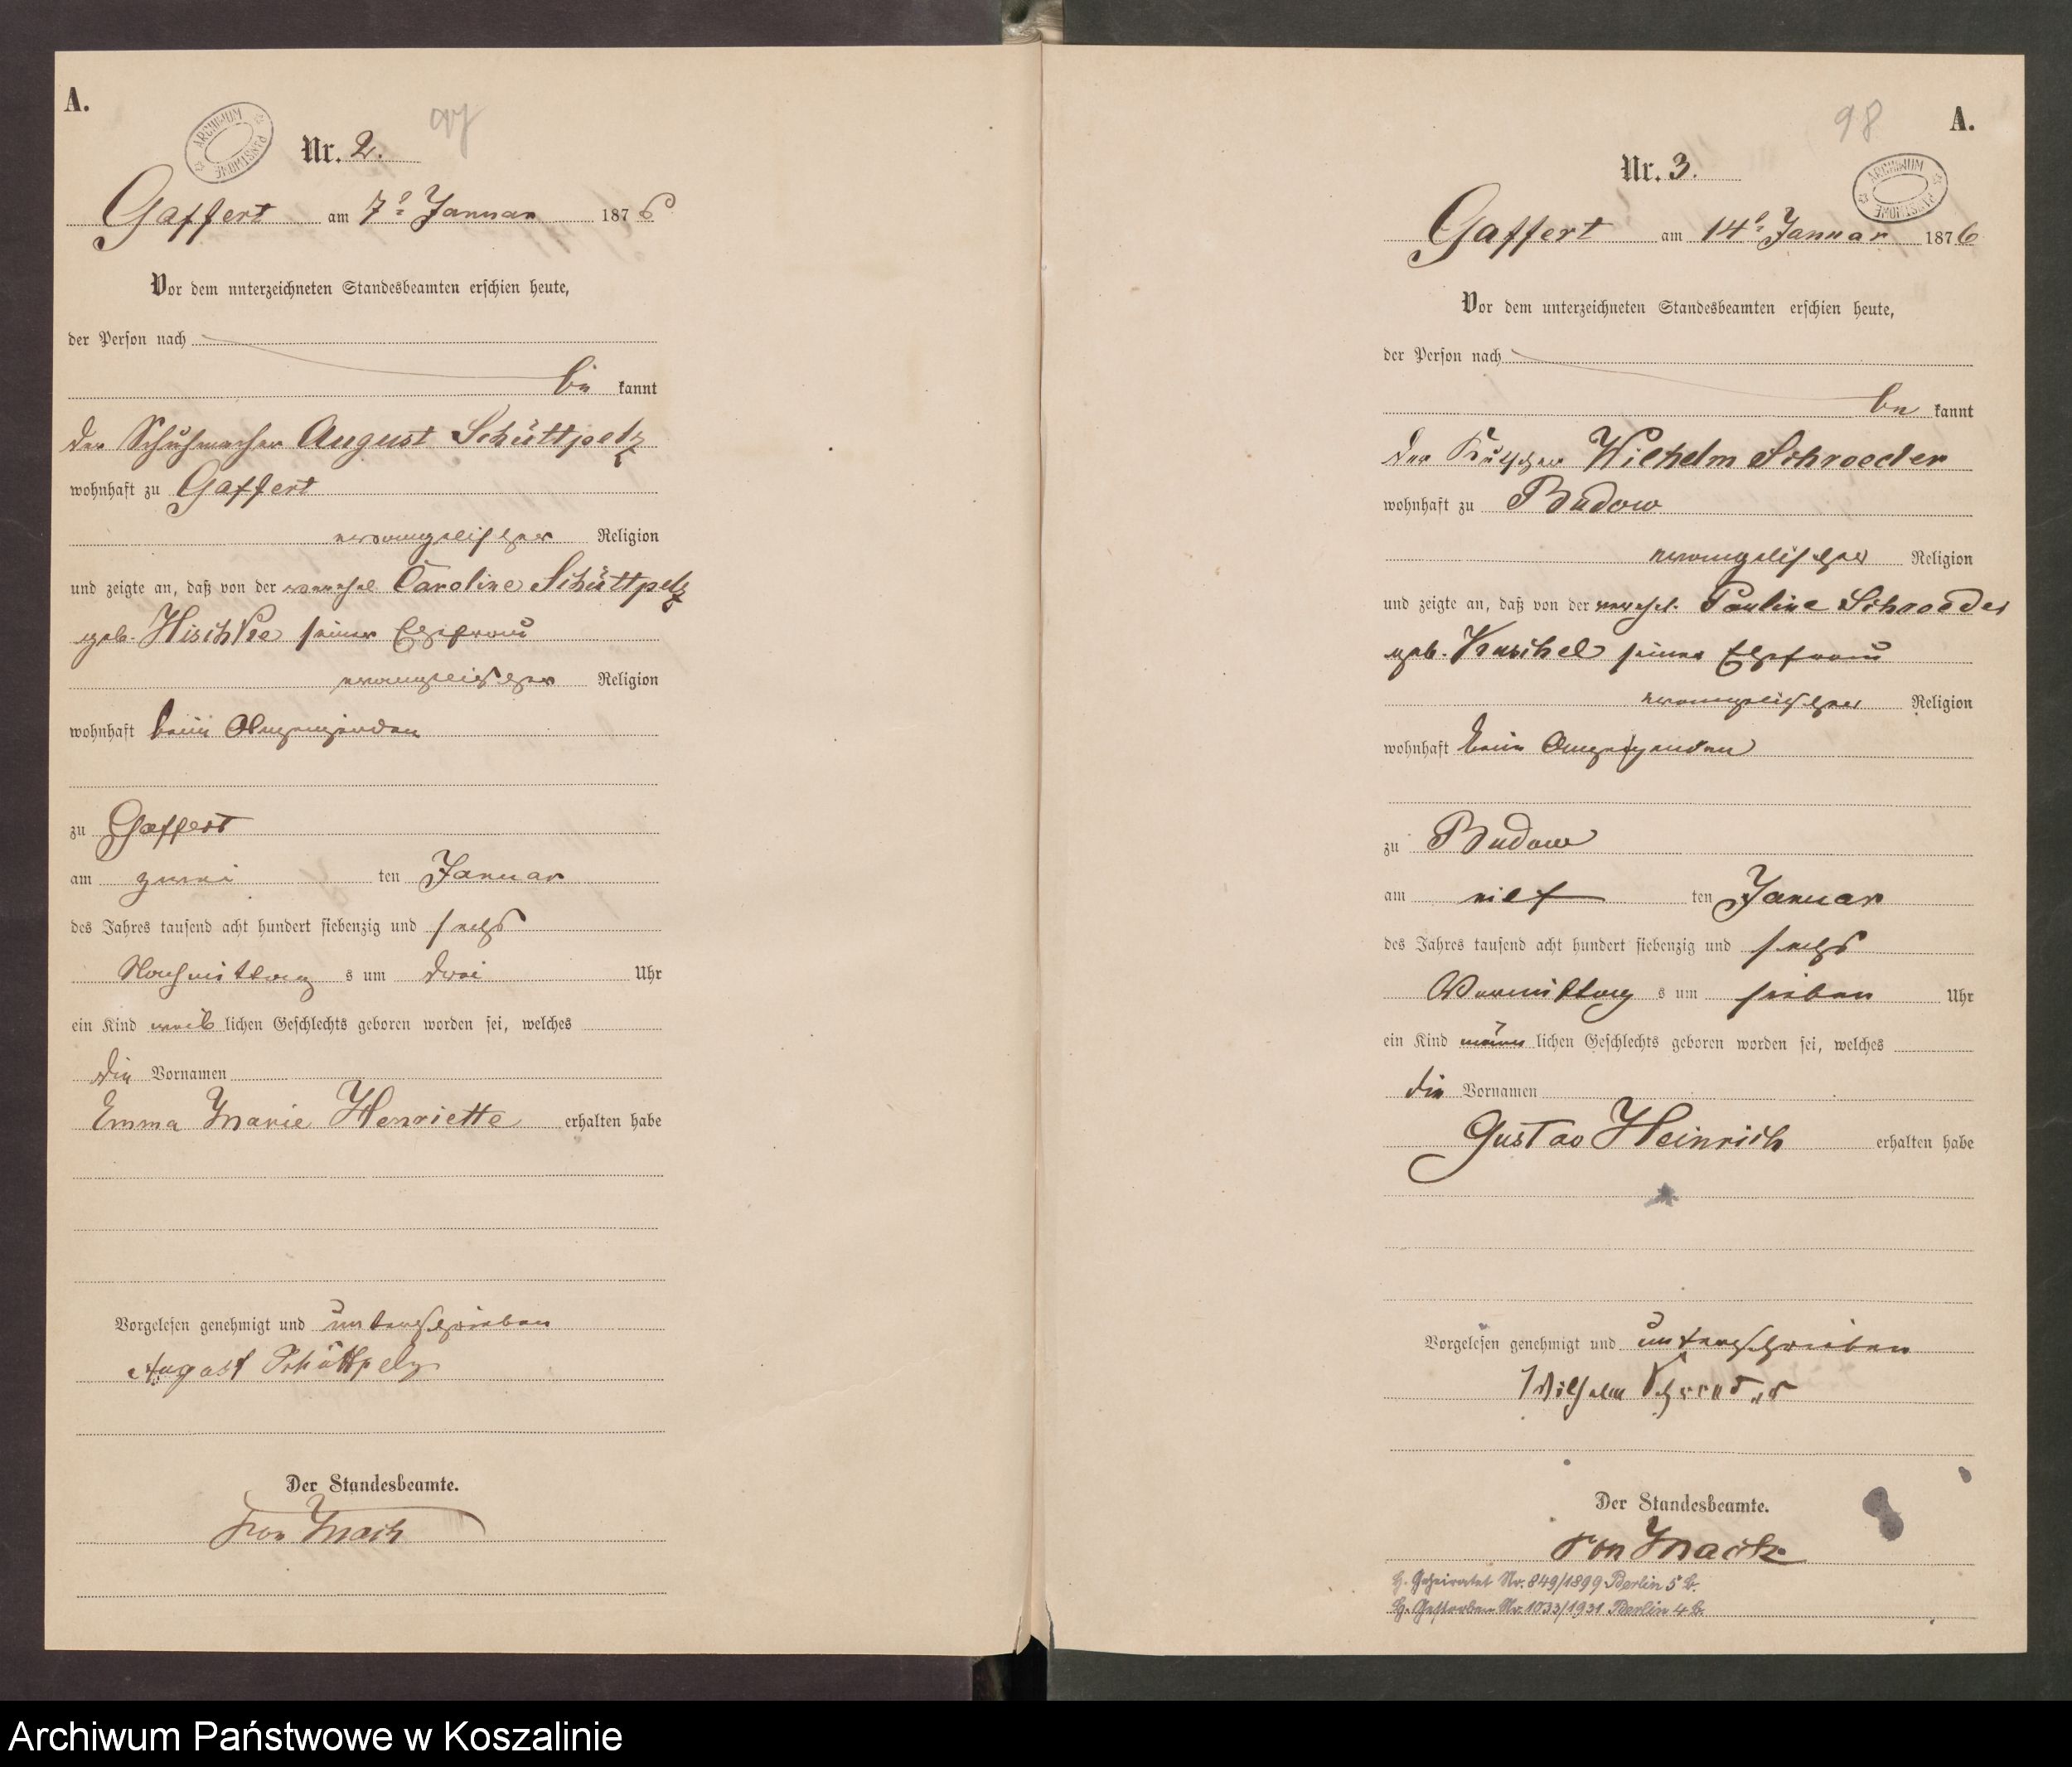 A.
ARCHIWUM PAŃSTWOWE
Nr. 2.
97
Gaffert am 7t Januar 1876
Vor dem unterzeichneten Standesbeamten erschien heute,
der Person nach
be kannt
der Schuhmacher August Schüttpelz
wohnhaft zu Gaffert
evangelischer Religion
und zeigte an, daß von der verehel Caroline Schüttpelz
geb. seiner Ehefrau
evangelischer Religion
wohnhaft beim Anzeigenden
zu Gaffert
am zwei ten Januar
des Jahres tausend acht hundert siebenzig und sechs
Nachmittag s um drei Uhr
ein Kind weib lichen Geschlechts geboren worden sei, welches
die Vornamen
Emma Marie Henriette erhalten habe
Vorgelesen genehmigt und unterschrieben
August Schüttpelz
Der Standesbeamte.
von Mach
98
A.
Nr. 3.
ARCHIWUM PAŃSTWOWE
Gaffert am 14t Januar 1876
Vor dem unterzeichneten Standesbeamten erschien heute,
der Person nach
be kannt
der Kutscher Wilhelm Schroeder
wohnhaft zu Budow
evangelischer Religion
und zeigte an, daß von der verehel. Pauline Schroeder
geb. Kuschel seiner Ehefrau
evangelischer Religion
wohnhaft beim Anzeigenden
zu Budow
am elf ten Januar
des Jahres tausend acht hundert siebenzig und sechs
Vormittag s um sieben Uhr
ein Kind männ lichen Geschlechts geboren worden sei, welches
die Vornamen
Gustav Heinrich erhalten habe
Vorgelesen genehmigt und unterschrieben
Wilhelm Schroeder
Der Standesbeamte.
von Mach
H. Geheiratet Nr. 849/1899 Berlin 5 b.
H. Gestorben Nr. 1033/1931 Berlin 4 b.
Archiwum Państwowe w Koszalinie